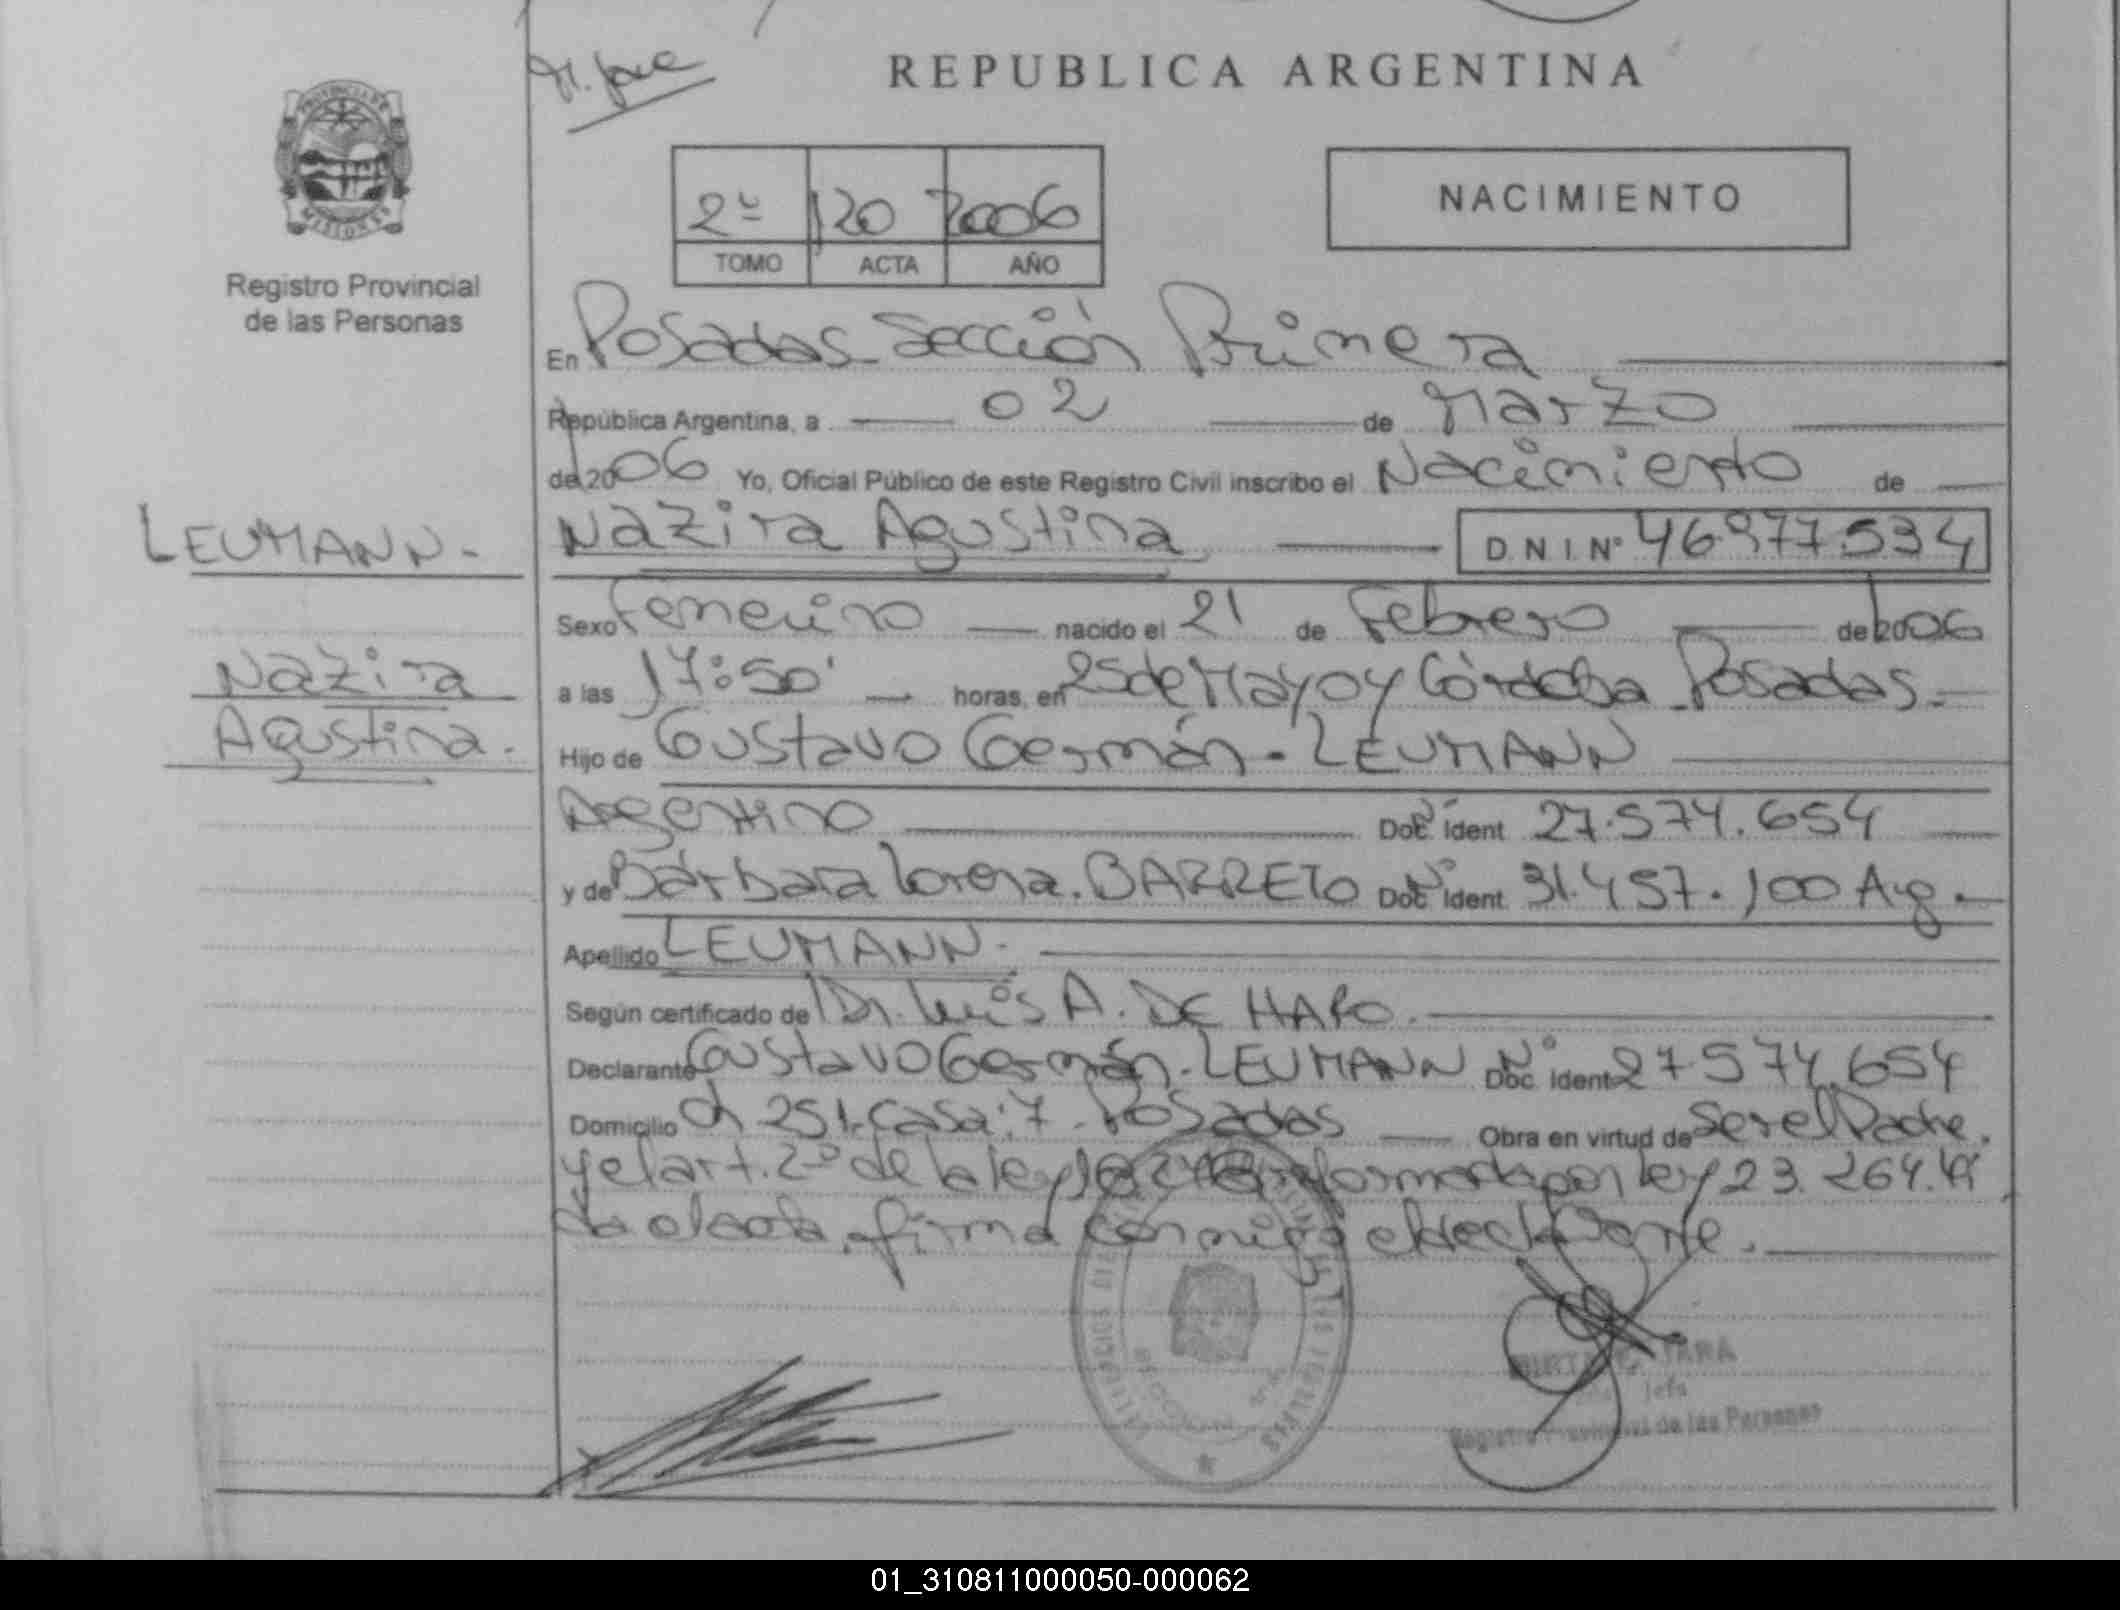 REPUBLICA ARGENTINA
PROVINCIA DE
MISIONES
Registro Provincial
de las Personas
2º 120 2006
TOMO ACTA AÑO
NACIMIENTO
En Posadas Sección Primera
República Argentina, a 02 de Marzo
de 2006 Yo, Oficial Público de este Registro Civil inscribo el Nacimiento de
LEUMANN.
Nazira
Agustina.
Nazira Agustina D N I Nº 46.977.534
Sexo Femenino nacido el 21 de Febrero de 2006
a las 17:50' horas, en 25 de Mayo y Córdoba Posadas.
Hijo de Gustavo Germán - LEUMANN
Argentino Doc. Nº Ident 27.574.654
y de Bárbara Lorena. BARRETO Doc. Nº Ident. 31.457.100 Arg.
Apellido LEUMANN.
Según certificado de Dr. Luis A. DE HARO.
Declarante Gustavo Germán. LEUMANN Doc. Nº Ident 27.574.654
Domicilio Ch 251. Casa: 7. Posadas Obra en virtud de Ser el Padre.
y el art. 2º de la ley reformada por ley 23.264.
firma conmigo el declarante.
JARA
Jefa
Registro Provincial de las Personas
01_310811000050-000062